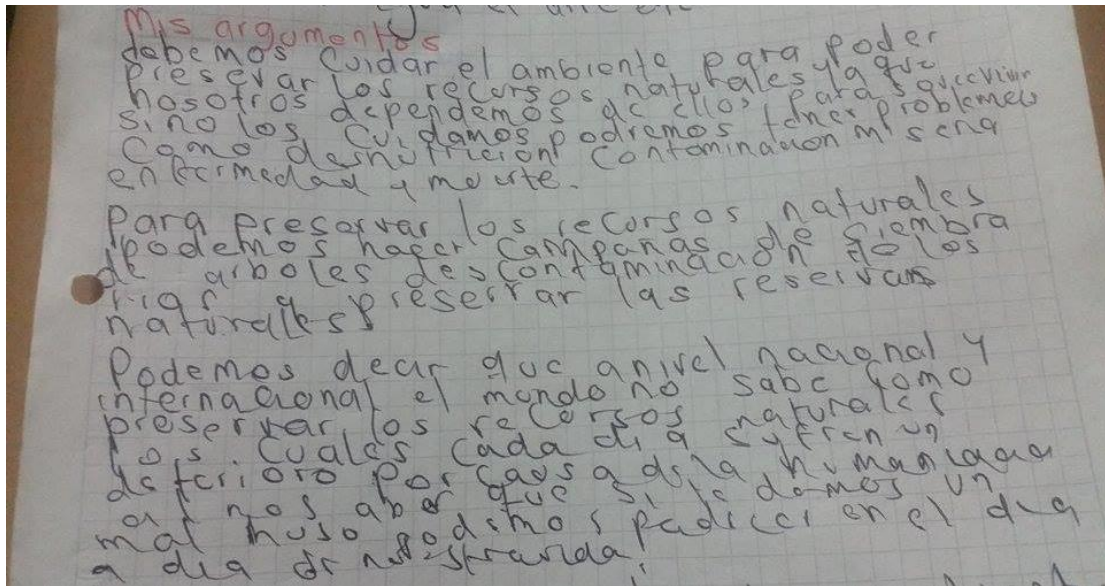 Mis argumentos
debemos cuidar el ambiente para poder
presevar los recursos naturales ya que
nosotros dependemos de ellos para
sino los cuidamos podremos tener problemas
como desnutricion contaminacion miseria
enfermedad y meurte.
Para preservar los recorsos naturales
podemos hacer campañas de siembra
de arboles descontaminacion de los
rios y preserrar las reservas
naturales
Podemos decir que anivel nacional y
internacional el mundo no sabe como
preserrar los recorsos naturales
los cuales cada dia sufren un
deterioro por caosa dela humanidad
al nos aber que si le damos un
mal huso podemos padecer en el dia
a dia de